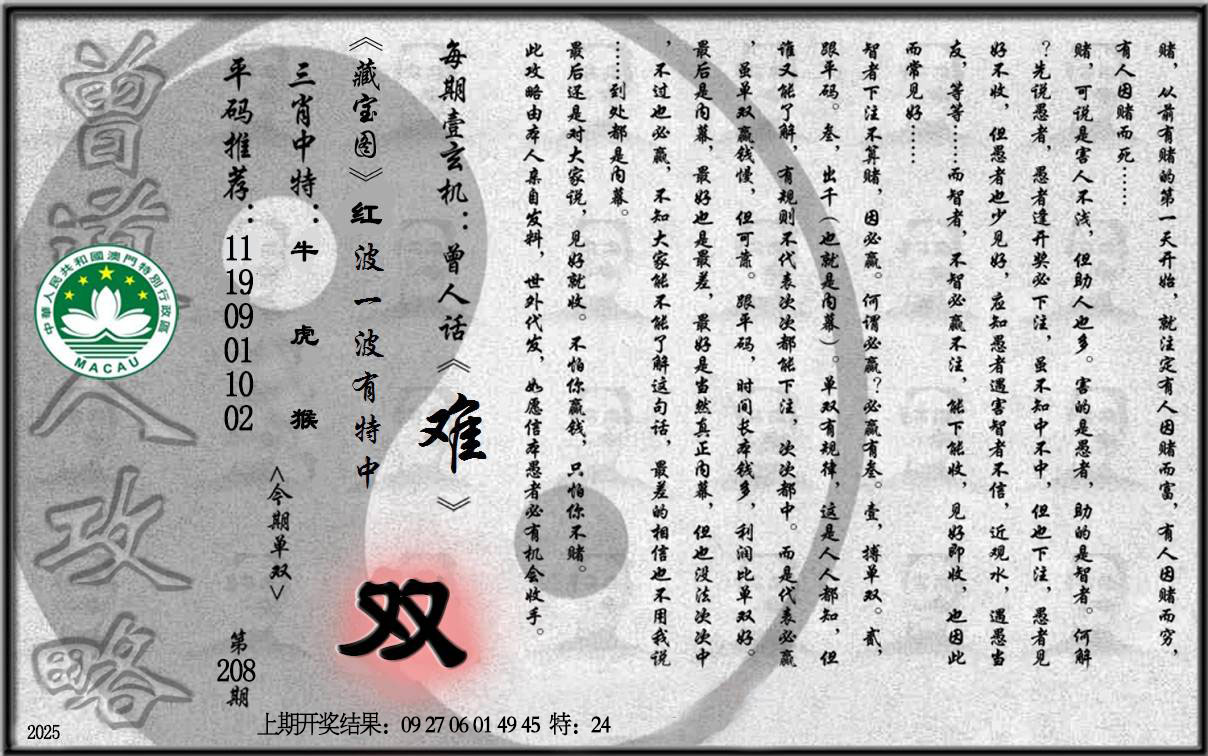 赌，从前有赌的第一天开始，就注定有人因赌而富，有人因赌而穷，
有人因赌而死……
赌，可说是害人不浅，但助人也多。害的是愚者，助的是智者。何解
？先说愚者，愚者逢开奖必下注，虽不知中不中，但也下注，愚者见
好不收，但愚者也少见好，应知愚者遇害智者不信，近观水，遇愚当
友，等等……而智者，不智必赢不注，能下能收，见好即收，也因此
而常见好……
智者下注不算赌，因必赢。何谓必赢？必赢有叁。壹，搏单双。贰，
跟平码。叁，出千（也就是内幕）。单双有规律，这是人人都知，但
谁又能了解，有规则不代表次次都能下注，次次都中。而是代表必赢
，虽单双赢钱慢，但可靠。跟平码，时间长本钱多，利润比单双好。
最后是内幕，最好也是最差，最好是当然真正内幕，但也没法次次中
，不过也必赢，不知大家能不能了解这句话，最差的相信也不用我说
……到处都是内幕。
最后还是对大家说，见好就收。不怕你赢钱，只怕你不赌。
此攻略由本人亲自发料，世外代发，如愿信本愚者必有机会收手。
每期壹玄机：曾人话《难》
《藏宝图》红波一波有特中
双
三肖中特：牛 虎 猴
<今期单双>
平码推荐：11 19 09 01 10 02
第208期
曾道人攻略
中華人民共和國澳門特別行政區
MACAU
上期开奖结果：09 27 06 01 49 45 特：24
2025